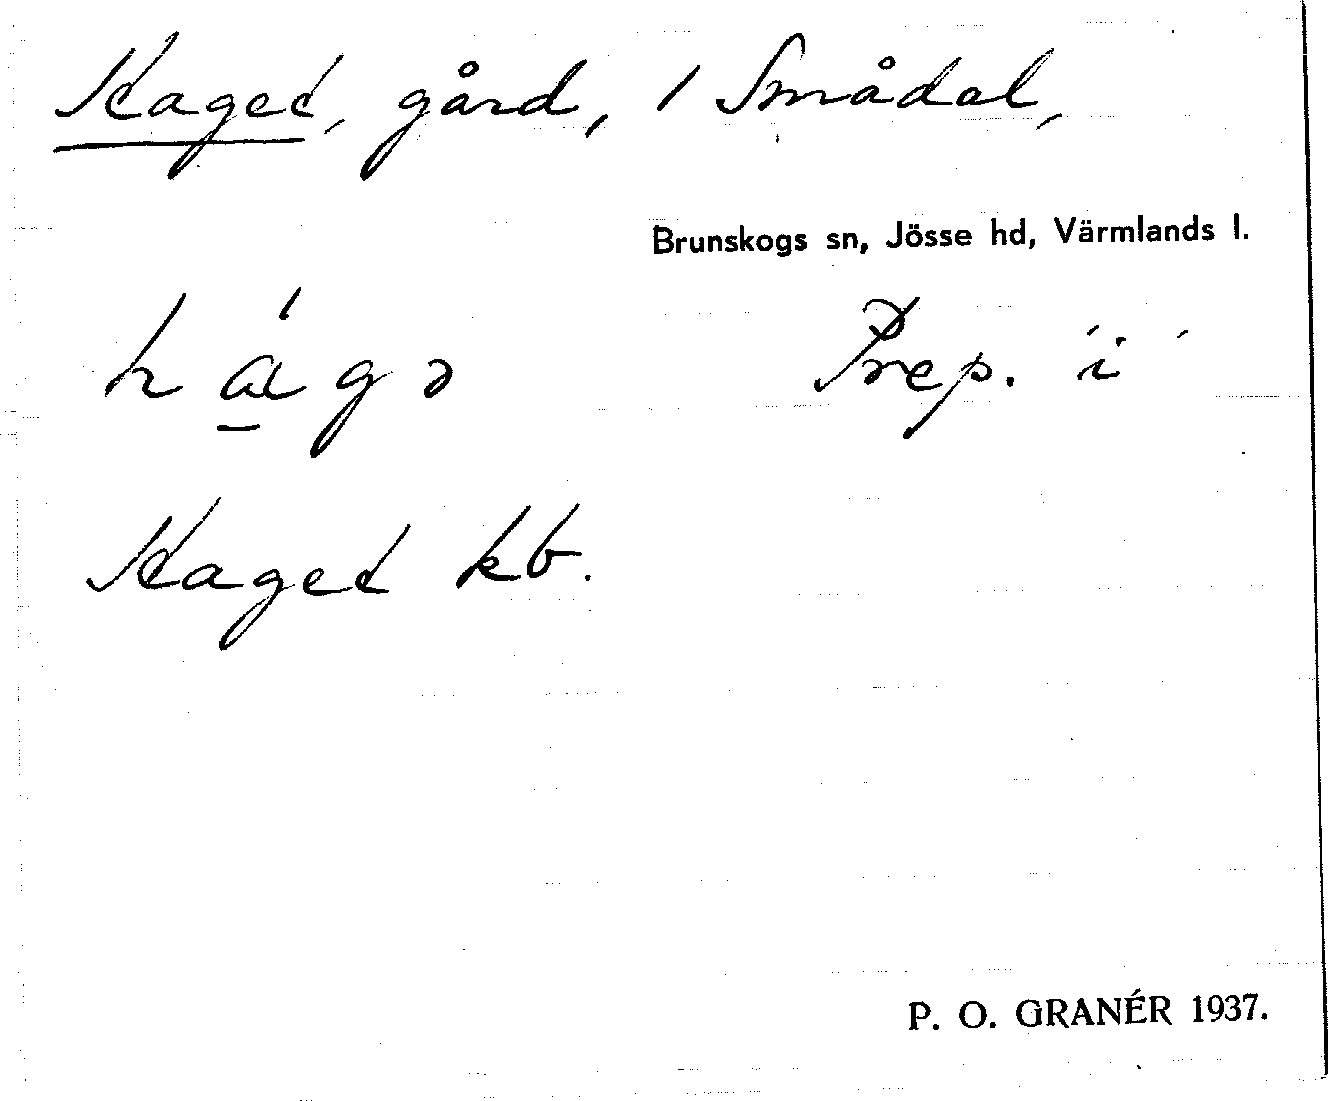 Haget, gård, 1 Smådal,
Brunskogs sn, Jösse hd, Värmlands l.
hágə Prep. 'i'
Haget kb.
P. O. GRANÉR 1937.